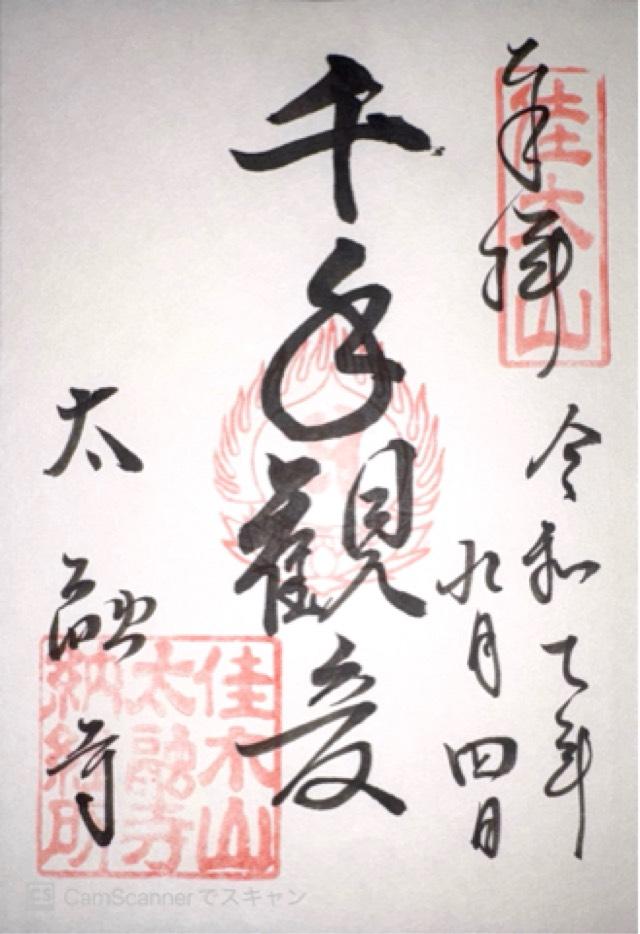 奉拝
佳木山
令和七年
九月四日
千手觀音
太融寺
佳木山
太融寺
納経印
CS CamScannerでスキャン